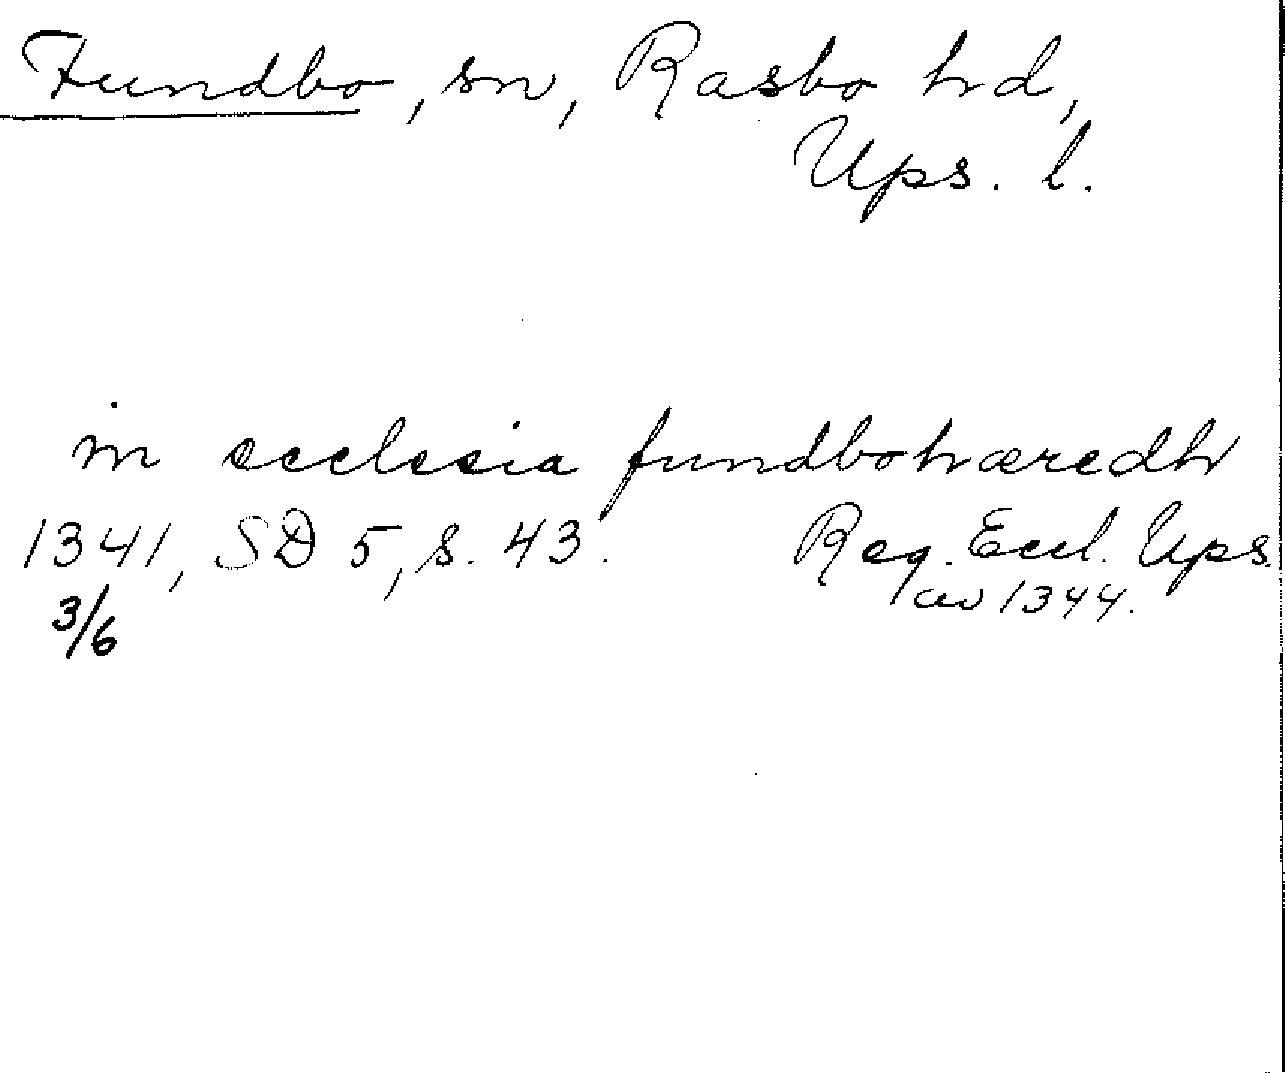 Fundbo, sn, Rasbo hd,
Ups. l.
in ecclesia fundbohæredh
1341, SD 5, s. 43. Reg. Eccl. Ups.
3/6 av 1344.